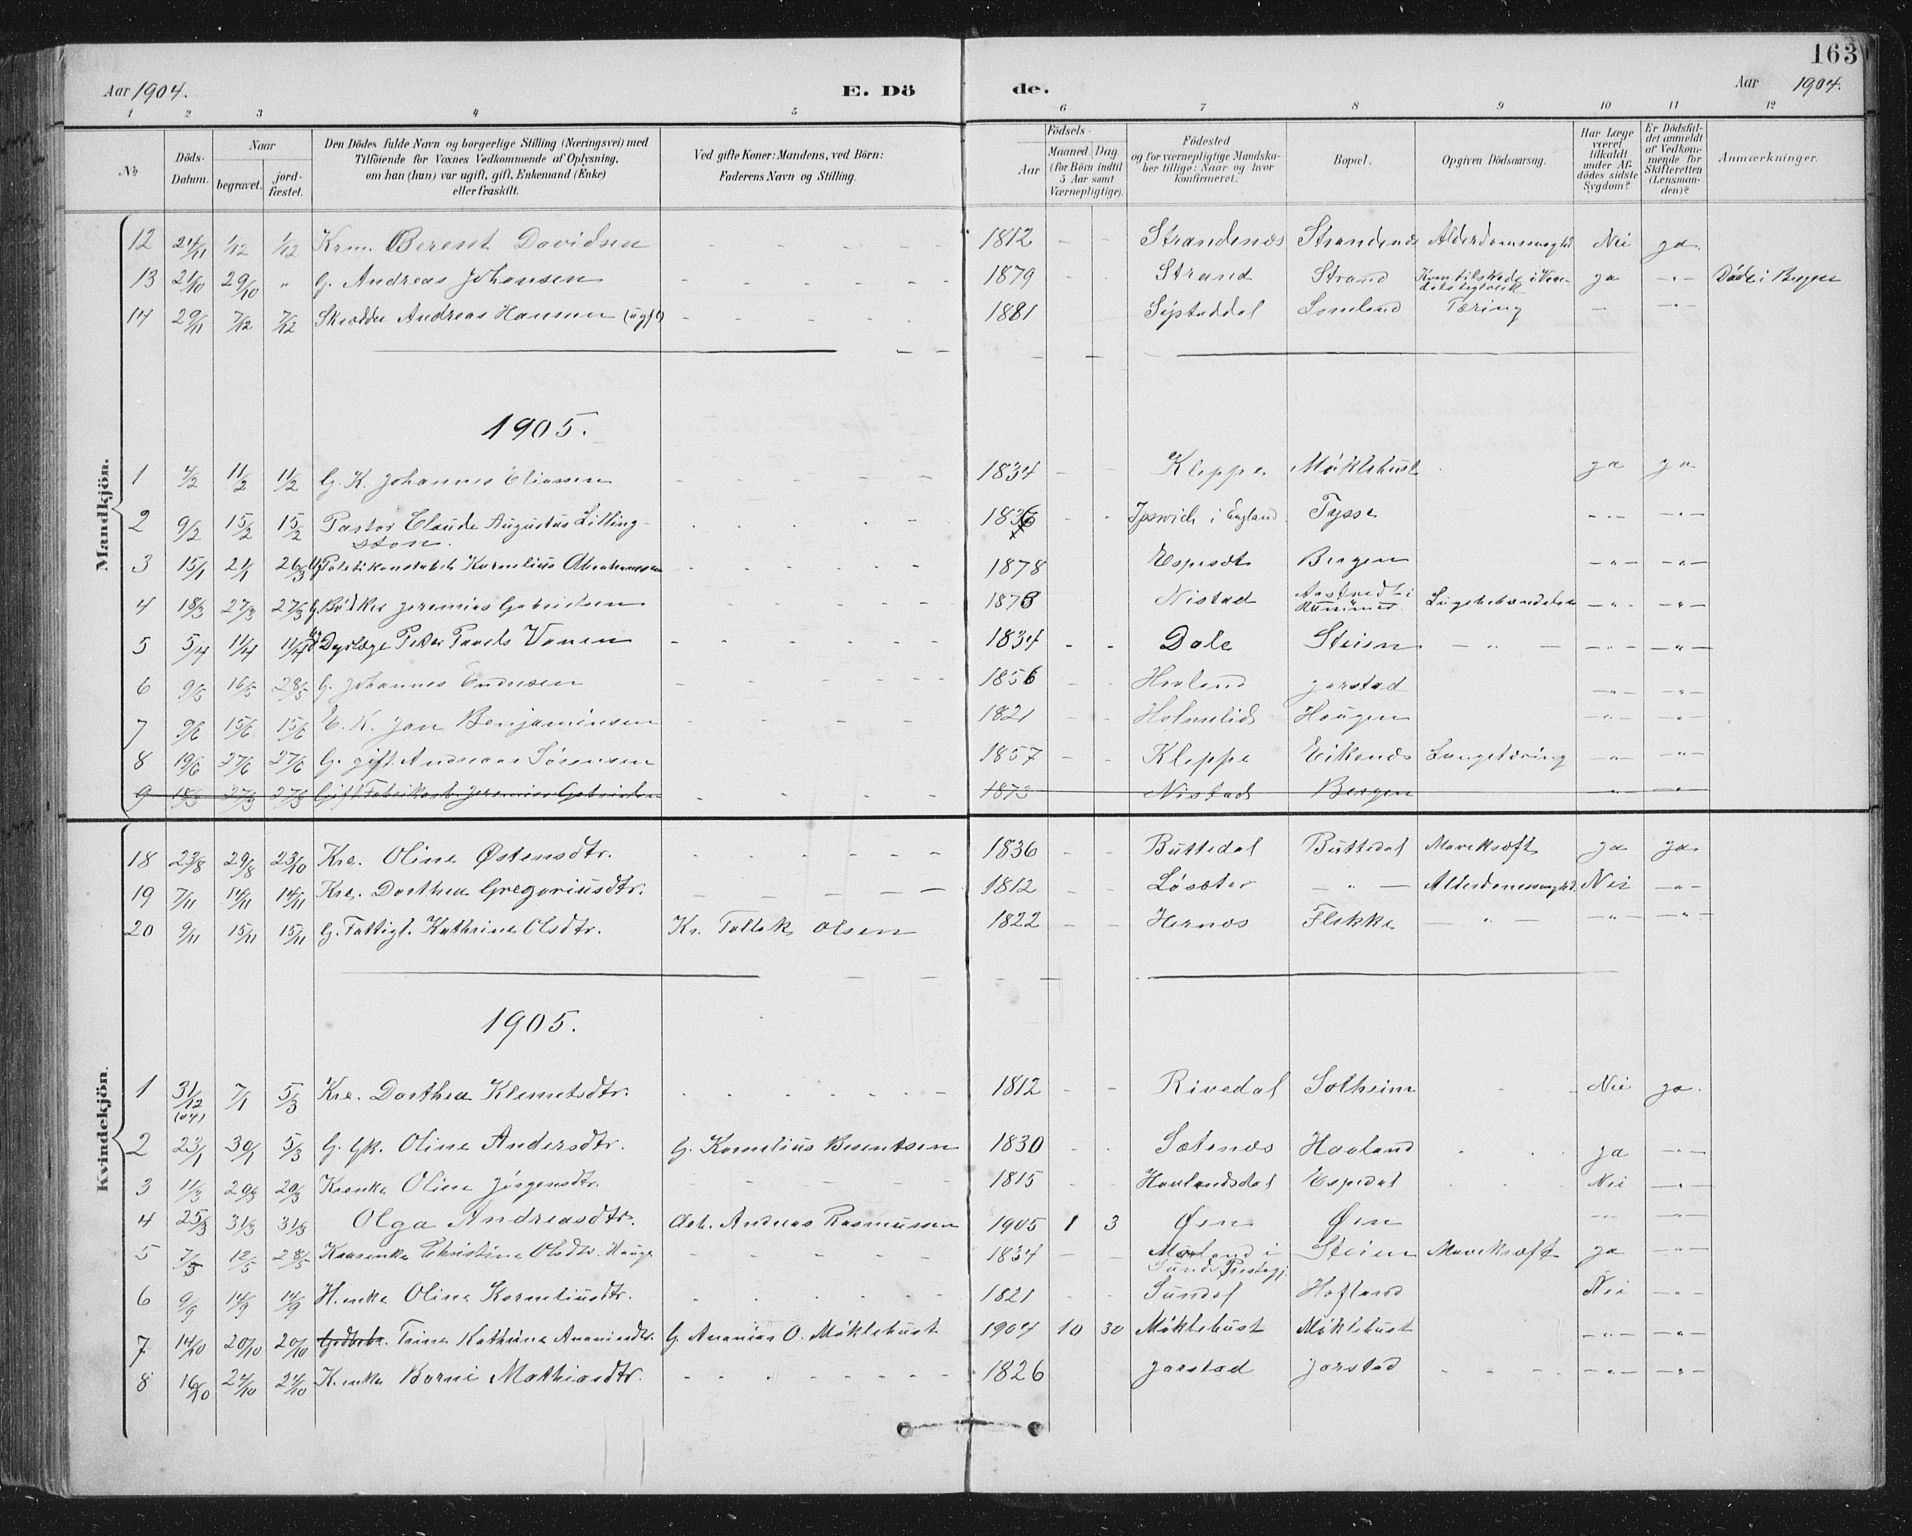 163
Aar 1904. E. Dö de. Aar 1904.
1 2 3 4 5 6 7 8 9 10 11 12
No
Döds-Datum.
Naar
begravet.
jord-fæstet.
Den Dödes fulde Navn og borgerlige Stilling (Næringsvei) med
Tilföiende for Voxnes Vedkommende af Oplysning,
om han (hun) var ugift, gift, Enkemand (Enke)
eller fraskilt.
Ved gifte Koner: Mandens, ved Börn:
Faderens Navn og Stilling.
Födsels-
Aar
Maaned.
Dag.
(for Börn indtil
5 Aar samt
Værnepligtige).
Födested
og for værnepligtige Mandska-
ber tillige: Naar og hvor
konfirmeret.
Bopæl.
Opgiven Dödsaarsag.
Har Læge
været
tilkaldt
under Af-
dödes sidste
Sygdom?
Er Dödsfal-
det anmeldt
af Vedkom-
mende for
Skifteretten
(Lensman-
den)?
Anmærkninger.
Mandkjön.
12 24/11 1/12 1/12 Krm. Berent Davidsen - - 1812 - - Strandenæs Strandenæs Nei ja
13 21/10 29/10 " G. Andreas Johansen - - 1879 - - Strand Strand ja - " - Døde i Bergen
14 29/11 7/12 7/12 Skrædder Andreas Hansen (ugift) - - 1881 Tæring - - " -
1905.
1 4/2 11/2 11/2 G. K. Johannes Eliassen - - 1834 - - Kleppe Møklebust ja ja
2 9/2 15/2 15/2 Pastor Claude Augustus Lilling-
ston. 1836 - - Ipswich i England Tysse - " - - " -
3 15/1 21/1 26/3 Kornelius Abrahamsen 1878 Espedt Bergen - " - - " -
4 18/3 27/3 27/3 G. Bødker Jeremias Gabrielsen 1873 Nistad - " - - " -
5 5/4 11/4 11/4 Dyrlæge Peter 1834 - - Dale Steien - " - - " - - " -
6 9/5 16/5 28/5 G. Johannes Endresen 1856 - - Jarstad - " - - " -
7 9/6 15/6 15/6 E. K. Jan Benjaminsen 1821 - - Holmelid Haugen - " - - " -
8 19/6 27/6 27/6 G. gift Andreas Sørensen 1857 - - Kleppe Eikenæs Lungetæring - " - - " -
9 18/3 27/3 27/3 Gift Jeremias Gabrielsen 1873 Nistad Bergen - " - - " -
Kvindekjön.
18 23/8 29/8 23/10 Kre. Oline Østensdtr. - - 1836 - - Buttedal Buttedal Mavekræft ja ja
19 7/11 14/11 14/11 Kre. Dorthea Gregoriusdtr. - - 1812 - - Løsæter - " - Nei - " -
20 9/11 15/11 15/11 G. Fattigl. Kathrine Olsdtr. Kr. Tollak Olsen 1822 - - Hernæs Flekke - " - - " - - " -
1905.
1 31/12 (04) 7/1 5/3 Kre. Dorthea Klemetsdtr. 1812 - - Rivedal Solheim Nei ja
2 23/1 30/1 5/3 G. Gk. Oline Andersdtr. G. Kornelius Berentsen 1830 - - Sætenæs Havland ja - " -
3 11/3 20/3 20/3 Krenke Oline Jørgensdtr. 1815 - - Havlandsdal Espedal Nei - " -
4 25/3 31/3 31/3 Olga Andreasdtr. Andreas Rasmussen 1905 1 3 Øen Øen - " - - " -
5 7/5 12/5 28/5 Christine Olsdtr. Hauge - - 1834 - - Steien Mavekræft ja - " -
6 9/9 14/9 14/9 Oline Korneliusdtr. 1821 - - Sundal Hofland Nei - " -
7 14/10 20/10 20/10 Trine Kathrine Ananiasdtr. G. Ananias O. Møklebust 1904 10 30 Møklebust Møklebust - " - - " -
8 16/10 24/10 24/10 Berni Mathiasdtr. 1826 Jarstad Jarstad - " - - " -